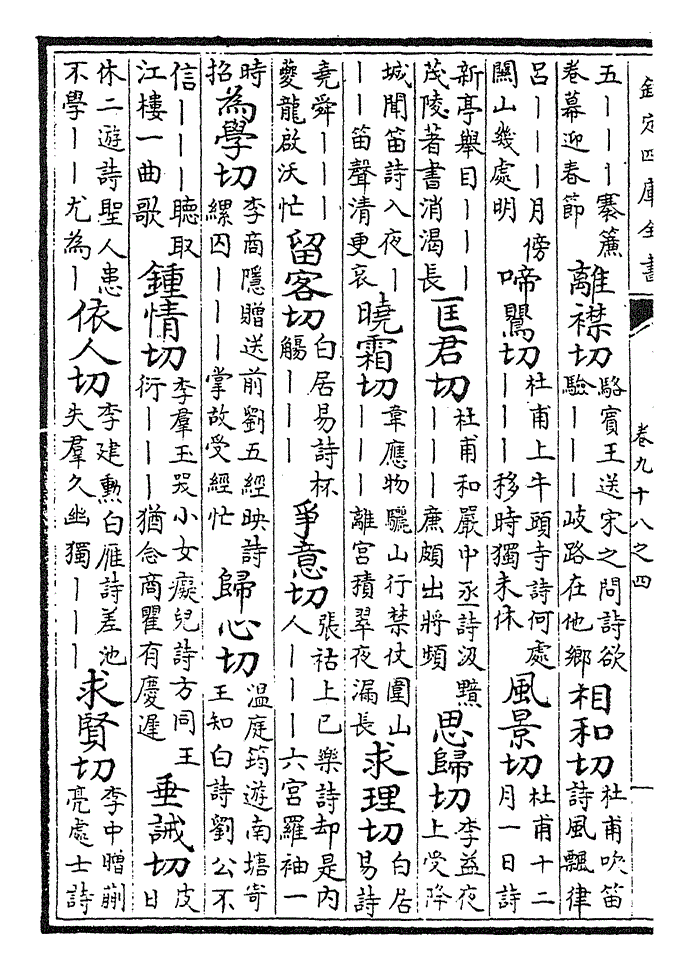 欽定四庫全書 卷九十八之四 一
五｜｜｜褰簾卷幕迎春節 離襟切 駱賓王送宋之問詩欲驗｜｜｜岐路在他鄉 相和切 杜甫吹笛詩風飄律
呂｜｜｜月傍關山幾處明 啼鶯切 杜甫上牛頭寺詩何處｜｜｜移時獨未休 風景切 杜甫十二月一日詩
新亭舉目｜｜｜茂陵著書消渴長 匡君切 杜甫和嚴中丞詩汲黯｜｜｜廉頗出將頻 思歸切 李益夜上受降
城聞笛詩入夜｜｜｜笛聲清更哀 曉霜切 韋應物驪山行禁仗圍山｜｜｜離宮積翠夜漏長 求理切 白居易詩
堯舜｜｜｜夔龍啟沃忙 留客切 白居易詩杯觴｜｜｜ 爭意切 張祜上巳樂詩却是內人｜｜｜六宮羅袖一
時招 為學切 李商隱贈送前劉五經映詩縲囚｜｜｜掌故受經忙 歸心切 溫庭筠遊南塘寄王知白詩劉公不
信｜｜｜聽取江樓一曲歌 鍾情切 李羣玉哭小女癡兒詩方同王衍｜｜｜猶念商瞿有慶遲 垂誡切 皮日
休二遊詩聖人患不學｜｜尤為｜ 依人切 李建勲白雁詩差池失羣久幽獨｜｜｜ 求賢切 李中贈蒯亮處士詩